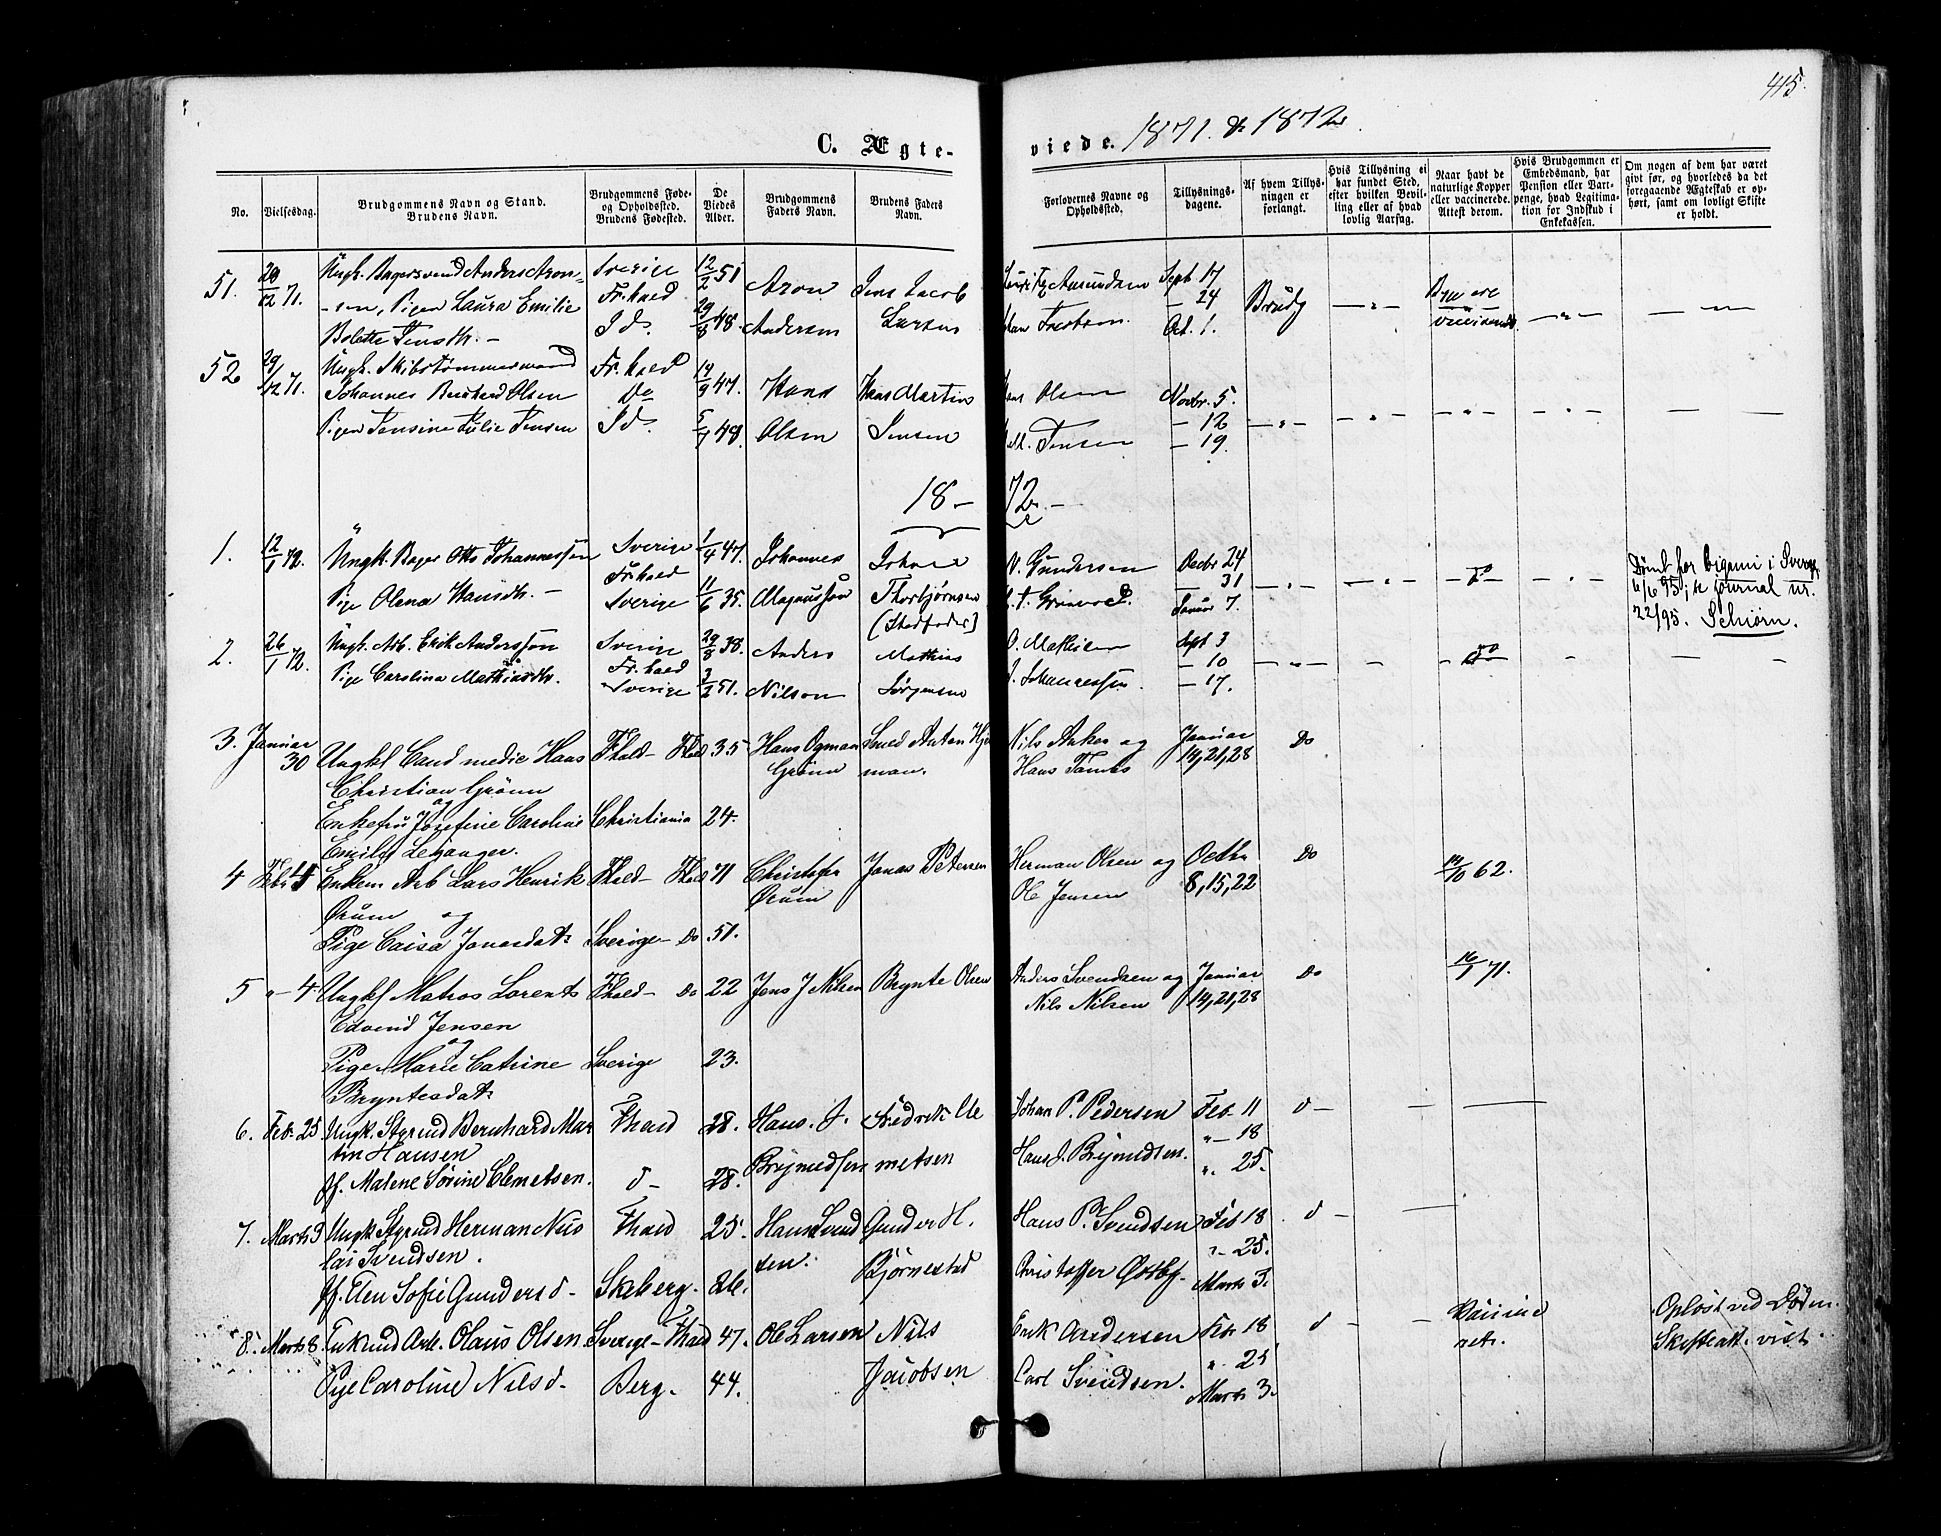 415.
C. Ægte-
viede. 1871. & 1872
No.
Vielsesdag.
Brudgommens Navn og Stand.
Brudens Navn.
Brudgommens Føde-
og Opholdssted.
Brudens Fødested.
De
Viedes
Alder.
Brudgommens
Faders Navn.
Brudens Faders
Navn.
Forlovernes Navne og
Opholdssted.
Tillysnings-
dagene.
Af hvem Tillys-
ningen er
forlangt.
Hvis Tillysning ei
har fundet Sted,
efter hvilken Bevil-
ling eller af hvad
lovlig Aarsag.
Naar havt de
naturlige Kopper
eller vaccinerede.
Attest derom.
Hvis Brudgommen er
Embedsmand, har
Pension eller Vart-
penge, hvad Legitima-
tion for Indskud i
Enkekassen.
Om nogen af dem har været
givt før, og hvorledes da det
foregaaende Ægteskab er op-
hørt, samt om lovligt Skifte
er holdt.
51. 29/12 71. Ungk. Bagersvend Anders Aron- Sverige 12/2 51 Aron Jens Jacob Amundsen Sept 17
-sen, Pigen Laura Emilie Fr.hald 29/8 48. Andersen Larsen — 24 Brudg — „ —
Bolette Jensdtr. — Id. Jacobsen. Oct. 1.
52 29/12 71. Ungk. Skibstømmermand Fr.hald 14/9 47. Hans Hans Martin Olsen Novbr. 5.
Johannes Olsen Do Olsen Jensen — 12 — „ —
Pigen Jensine Julie Jensen Id. 48. Jensen — 19.
18 — 72. —
1. 12/1 72. Ungk. Bager Otto Johannessen Sverige 1/4 47. Johannes N. Gundersen Decbr 24
Fr.hald — 31 — „ —
Pige Olena Hansdtr. — Sverige 11/6 35. Magnusson Thorbjørnsen Januar 7.
(Stedfader)
Dømt for bigami i Sverge
6/6 95; journal nr.
22/95. Schiørn.
2. 26/1 72. Ungk. Arb. Erik Anderssøn Sverige 29/8 38. Anders Mathias Sept 3
Fr.hald — 10 — „ —
Pige Carolina Mathiasdtr. Sverige 3/2 51. Nilson Jørgensen J. Johannessen — 17.
3. Januar 30 Ungkl Cand medic Hans Fhald — Fhald 35 Hans Ogman Smed Anton Hje Nils Anker og Januar Do
Christian Grønn Grønn man. Hans 14, 21, 28
og
Enkefru Josefine Caroline Christiania 24.
Emilie
4 Febr 4 Enkem Arb Lars Henrik Fhald — Fhald 71 Christofer Jonas Petersen Herman Olsen og Octbr Do 62.
Ørum og Ørum Ole Jensen 8, 15, 22
Pige Caisa Jonasdatr Sverige — Do 51.
5 „ — 4. Ungkl Matros Lorents Fhald — Do 22 Jens J Nilsen Brynte Olsen Anders Svendsen og Januar Do 16/1 71.
Edvind Jensen Nils Nilsen 14, 21, 28
og
Pige Marie Catrine Sverige 23.
Bryntesdatr
6. Feb. 25 Ungk. Styrmd Bernhard Mar Fhald 28. Hans. J. Fredrik Cle Johan P. Pedersen Feb 11 d —
tin Hansen Brynildsen metsen „ — 18
Pf. Malene Sørine Clemetsen. d — 28. Hans J. Brynildsen. „ 25.
7. Marts 3 Ungk Styrmd Herman Nico Fhald 25. Hans Svend Gunder H. Hans P. Svendsen Feb 18 d —
lai Svendsen. sen. Bjørnestad „ — 25.
Pf. Elen Sofie Gundersd — Skeberg. 26. Christoffer Østby. Marts 3.
8. Marts 8. Enkmd Arb. Olaus Olsen Sverige — Fhald 47. Ole Larsen Nils Erik Andersen Feb 18 d — Vaccine Opløst ved Døden.
„ 25 retr. Skifteatt. vist.
Pige Caroline Nilsd — Berg. 44. Jacobsen Carl Svendsen. Marts 3.